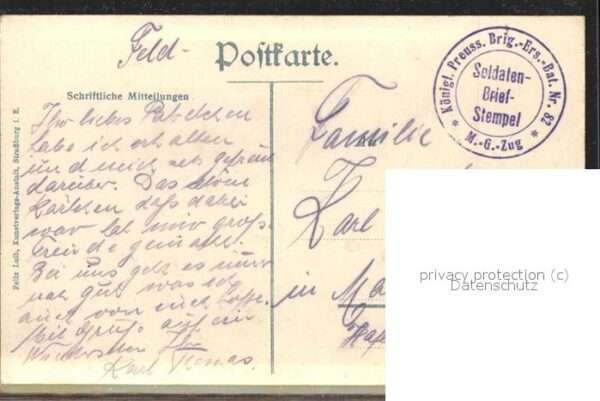 Feld-
Postkarte.
Königl. Preuss. Brig.-Ers.-Bat. Nr. 82
Soldaten-
Brief-
Stempel
* M.-G.-Zug *
Schriftliche Mitteilungen
Ihr liebes Paketchen
habe ich erhalten
und mich sehr gefreut
darüber. Das
Kärtchen daß dabei
war hat mir groß
Freude gemacht.
Bei uns geht es
gut was ich
auch von euch hoffe.
Mit Gruß auf ein
Wiedersehen Ihr
Karl
Familie
Karl
in Ma
Felix Luib, Kunstverlags-Anstalt, Straßburg i. E.
privacy protection (c)
Datenschutz